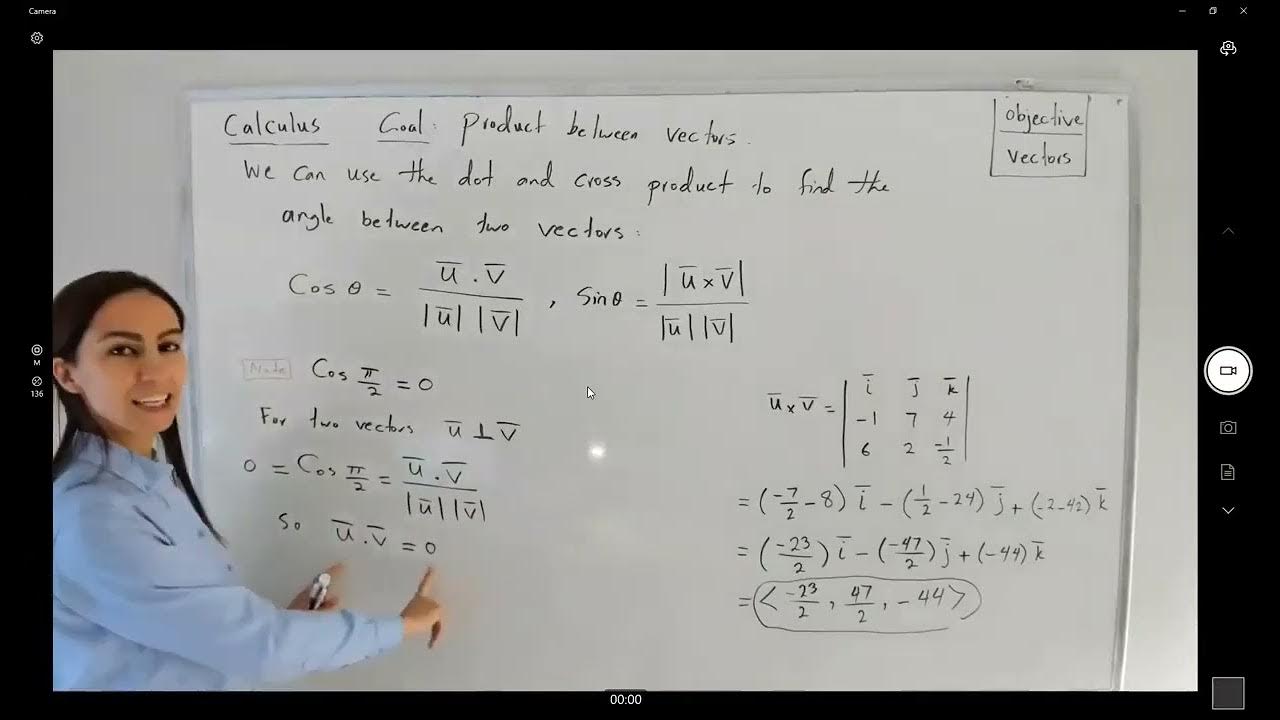 Camera
Calculus Goal: Product between vectors.
objective
vectors
We can use the dot and cross product to find the
angle between two vectors:
Cos θ = u̅ . v̅ / |u̅| |v̅| , Sin θ = |u̅ × v̅| / |u̅| |v̅|
Note Cos π/2 = 0
For two vectors u̅ ⊥ v̅
0 = Cos π/2 = u̅ . v̅ / |u̅| |v̅|
So u̅ . v̅ = 0
u̅ × v̅ = | i̅ j̅ k̅ |
| -1 7 4 |
| 6 2 -1/2 |
= (-7/2 - 8) i̅ - (1/2 - 24) j̅ + (-2-42) k̅
= (-23/2) i̅ - (-47/2) j̅ + (-44) k̅
= < -23/2 , 47/2 , -44 >
M
136
00:00